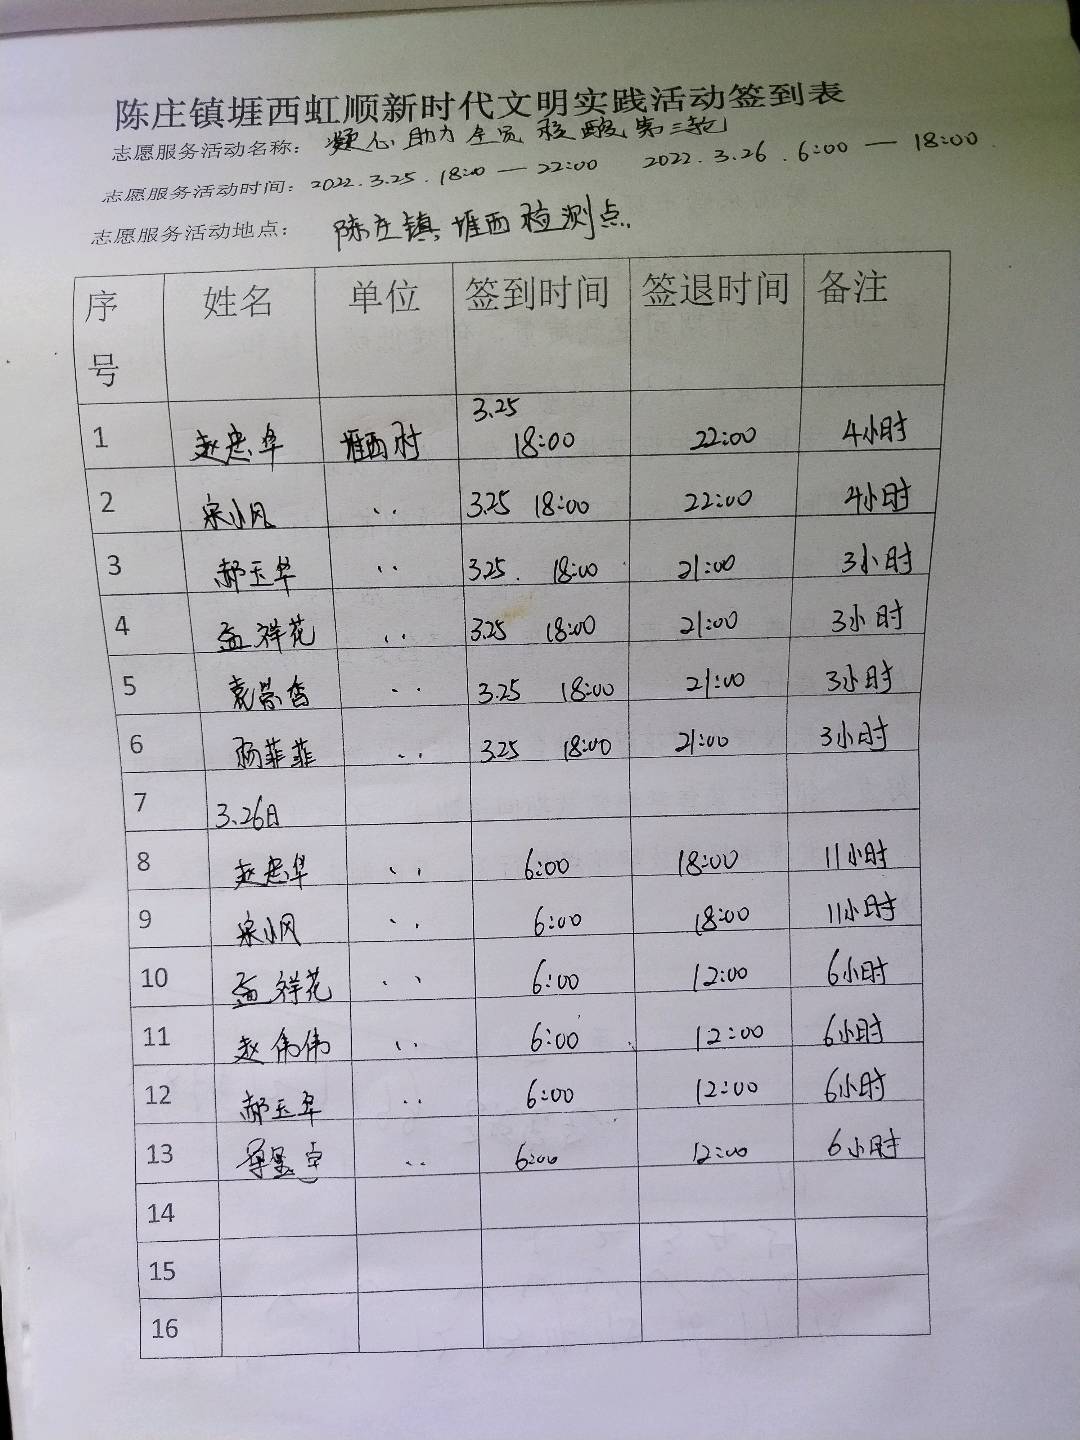 陈庄镇堐西虹顺新时代文明实践活动签到表
志愿服务活动名称: 凝心助力全员核酸第三轮
志愿服务活动时间: 2022.3.25.18:00—22:00 2022.3.26.6:00—18:00.
志愿服务活动地点: 陈庄镇堐西检测点.
序号 姓名 单位 签到时间 签退时间 备注
1 赵忠华 堐西村 3.25 18:00 22:00 4小时
2 宋小风 ‥ 3.25 18:00 22:00 4小时
3 郝玉华 ‥ 3.25. 18:00 21:00 3小时
4 孟祥花 ‥ 3.25 18:00 21:00 3小时
5 袁荣香 ‥ 3.25 18:00 21:00 3小时
6 杨菲菲 ‥ 3.25 18:00 21:00 3小时
7 3.26日
8 赵忠华 ‥ 6:00 18:00 11小时
9 宋小风 ‥ 6:00 18:00 11小时
10 孟祥花 ‥ 6:00 12:00 6小时
11 赵伟伟 ‥ 6:00 12:00 6小时
12 郝玉华 ‥ 6:00 12:00 6小时
13 ‥ 6:00 12:00 6小时
14
15
16